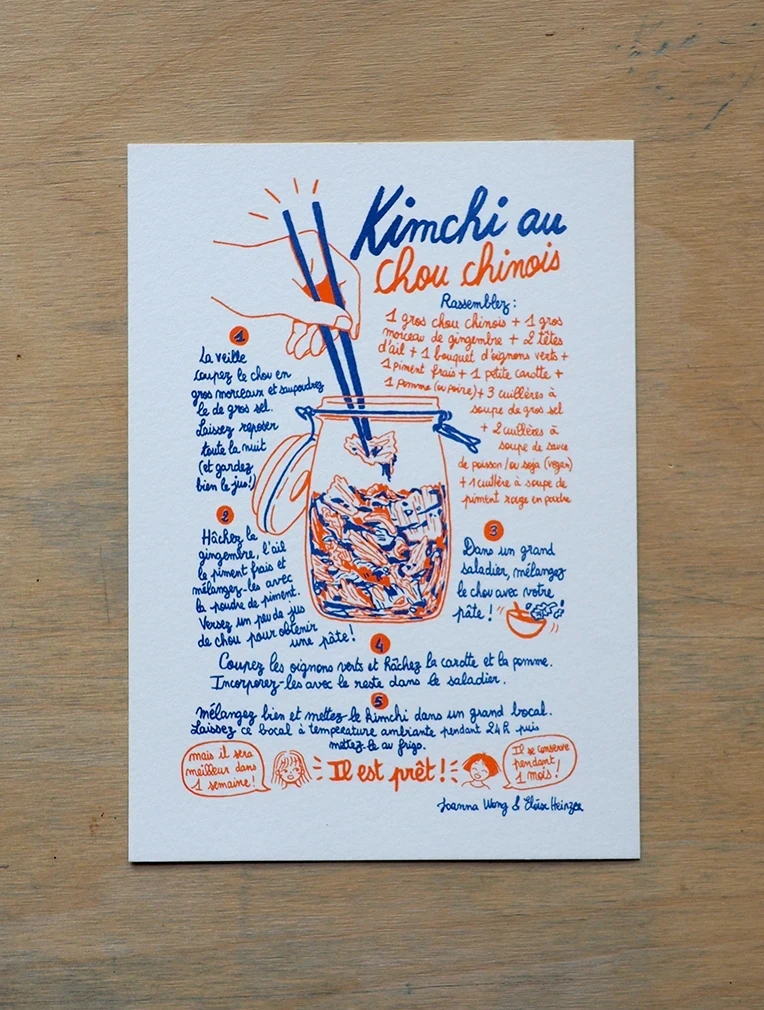 Kimchi au
chou chinois
Rassemblez :
1 gros chou chinois + 1 gros
morceau de gingembre + 2 têtes
d'ail + 1 bouquet d'oignons verts +
1 piment frais + 1 petite carotte +
1 pomme (ou poire) + 3 cuillères à
soupe de gros sel
+ 2 cuillères à
soupe de sauce
de poisson/ou soja (vegan)
+ 1 cuillère à soupe de
piment rouge en poudre
1
La veille
coupez le chou en
gros morceaux et saupoudrez
le de gros sel.
Laissez reposer
toute la nuit
(et gardez
bien le jus!)
2
Hâchez le
gingembre, l'ail
le piment frais et
mélangez-les avec
la poudre de piment.
Versez un peu de jus
de chou pour obtenir
une pâte!
3
Dans un grand
saladier, mélangez
le chou avec votre
pâte !
4
Coupez les oignons verts et hâchez la carotte et la pomme.
Incorporez-les avec le reste dans le saladier.
5
Mélangez bien et mettez le kimchi dans un grand bocal.
Laissez ce bocal à température ambiante pendant 24h puis
mettez-le au frigo.
mais il sera
meilleur dans
1 semaine!
Il est prêt !
Il se conserve
pendant
1 mois!
Joanna Wong & Eloïse Heinzer